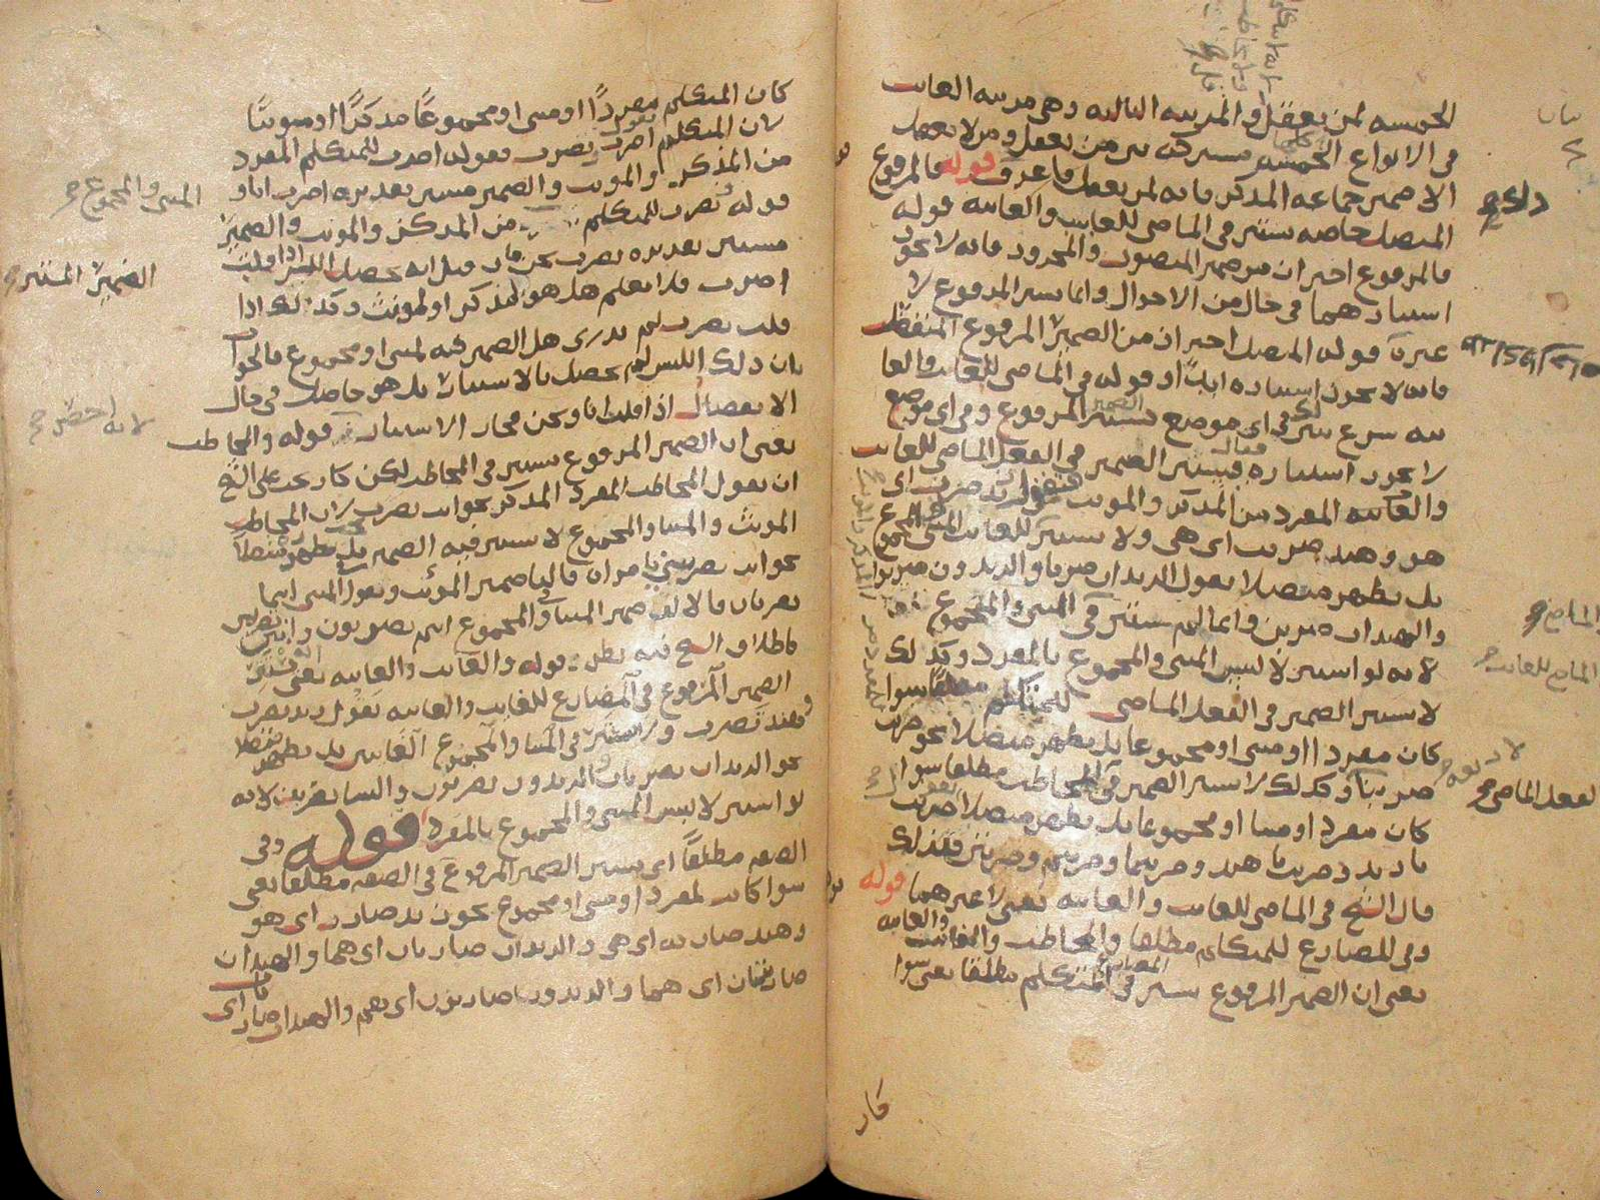 الخمسه لمن يعقل و المرتبه الثالثه وهى مرتبه الغائب
فى الانواع الخمسه مشتركه بين من يعقل ومن لا يعقل
الا ضمير جماعه المذكر فانه لمن يعقل ما عرف قوله فالمرفوع
المتصل خاصه يستتر فى الماضى للغائب والغائبه قوله
فالمرفوع احتراز من ضمير المنصوب والمجرور فانه لا يجوز
استتارهما فى حال من الاحوال وانما يستتر المرفوع لا
غير قوله المتصل احتراز من الضمير المرفوع المنفصل
فانه لا يجوز استتاره ايضا وقوله فى الماضى للغائب والغا
ئبه شرع يبين لك فى اى موضع يستتر الضمير المرفوع وفى اى موضع
لا يجوز استتاره فقال يستتر الضمير فى الفعل الماضى للغائب
والغائبه المفرد من المذكر والمونث فتقول زيد ضرب اى
هو وهند ضربت اى هى ولا يستتر للغائب المثنى والمجموع
بل يظهر متصلا يقول الزيدان ضربا والزيدون ضربوا
والهندان ضربتا وانما لم يستتر فى المثنى والمجموع
لانه لو استتر لالتبس المثنى والمجموع بالمفرد وكذلك
لا يستتر الضمير فى الفعل الماضى للمتكلم مطلقا سوا
كان مفردا او مثنى او مجموعا بل يظهر متصلا نحو ضربت
ضربنا وكذلك لا يستتر الضمير فى المخاطب مطلقا سوا
كان مفردا او مثنا او مجموعا بل يظهر متصلا ضربت
يا زيد وضربت يا هند وضربتما وضربتم وضربتن فلذلك
قال الشيخ فى الماضى للغائب والغائبه يعنى لا غيرهما قوله
وفى المضارع للمتكلم مطلقا والمخاطب والغائب والغائبه
يعنى ان الضمير المرفوع يستتر فى المضارع المتكلم مطلقا يعنى سوا
كان
كان المتكلم مفردا او مثنى او مجموعا مذكرا او مونثا
لان المتكلم يقول اضرب نضرب فقوله اضرب للمتكلم المفرد
من المذكر والمونث والضمير مستتر تقديره اضرب انا و
قوله نضرب للمتكلم من المذكر والمونث والضمير
مستتر تقديره نضرب نحن فان قيل انه يحصل اللبس اذا قلت
اضرب فلا يعلم هل هو لمذكر او لمونث وكذلك اذا
قلت نضرب لم يدرى هل الضمير فيه لمثنى او مجموع فالجواب
بان ذلك اللبس لم يحصل بالاستتار بل هو حاصل فى حال
الانفصال اذا قلت انا ونحن فجاز الاستتار قوله والمخاطب
يعنى ان الضمير المرفوع يستتر فى المخاطب لكن كان يجب على الشيخ
ان يقول المخاطب المفرد المذكر نحو انت تضرب لان المخاطب
المونث والمثنا والمجموع لا يستتر فيه الضمير بل يظهر متصلا
نحو انت تضربين يا مراه فالياء ضمير المونث ويقول المثنى انتما
تضربان فالالف ضمير المثنا والمجموع انتم تضربون وانتن تضربن
فاطلاق الشيخ فيه نظر قوله والغائب والغائبه يعنى يستتر
الضمير المرفوع فى المضارع للغائب والغائبه تقول زيد يضرب
وهند تضرب ولا يستتر فى المثنا والمجموع الغائبين بل يظهر متصلا
نحو الزيدان يضربان والزيدون يضربون والنسا يضربن لانه
لو استتر لالتبس المثنى والمجموع بالمفرد قوله وفى
الصفه مطلقا اى يستتر الضمير المرفوع فى الصفه مطلقا يعنى
سوا كانت لمفرد او مثنى او مجموع نحو زيد ضارب اى هو
وهند ضاربه اى هى والزيدان ضاربان اى هما والهندان
ضاربتان اى هما والزيدون ضاربون اى هم والهندات ضاربات اى
المثنى والمجموع
الضمير المستتر
لانه احضر
الماضى للغائب
لفعل الماضى